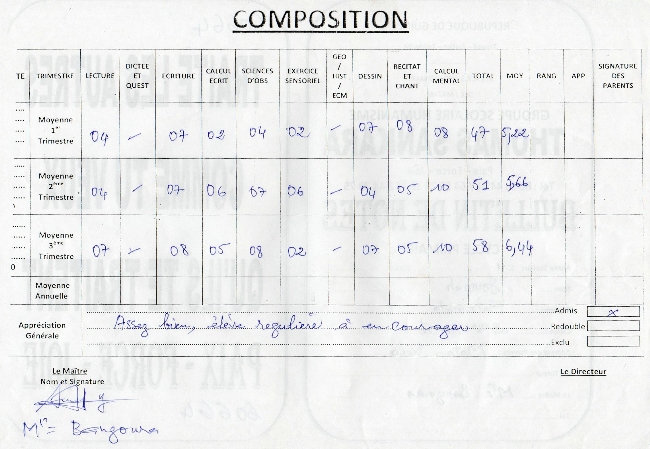 COMPOSITION
TE TRIMESTRE LECTURE DICTEE ET QUEST ECRITURE CALCUL ECRIT SCIENCES D'OBS EXERCICE SENSORIEL GEO / HIST / ECM DESSIN RECITAT ET CHANT CALCUL MENTAL TOTAL MOY RANG APP SIGNATURE DES PARENTS
Moyenne 1er Trimestre 04 – 07 02 04 02 – 07 08 08 47 5,22
Moyenne 2ème Trimestre 04 – 07 06 07 06 – 04 05 10 51 5,66
Moyenne 3ème Trimestre 07 – 08 05 08 02 – 07 05 10 58 6,44
Moyenne Annuelle
Appréciation Générale Assez bien, élève regulière à encourager
Admis x
Redouble
Exclu
Le Maître Le Directeur
Nom et Signature
Mr = Bangoura